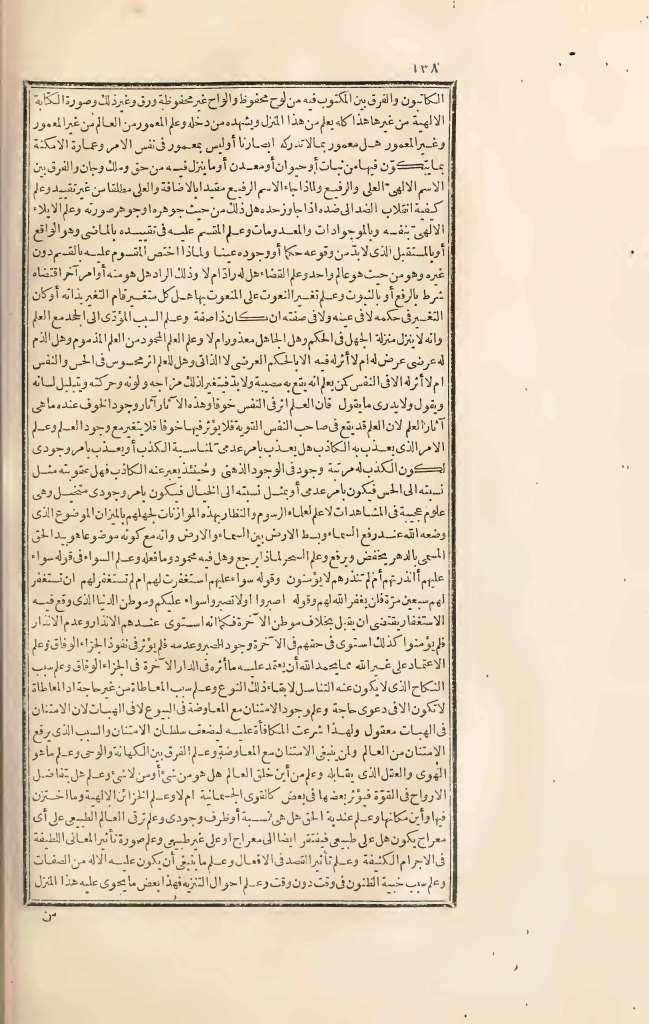 ١٣٨
الكاتبون والفرق بين المكتوب فيه من لوح محفوظ والواح غير محفوظة ورق وغير ذلك وصورة الكتابة
الالهية من غيرها هذا كله يعلم من هذا المنزل ويشهده من دخله وعلم المعمور من العالم من غير المعمور
وغير المعمور هل معمور بما لا تدركه ابصارنا أو ليس بمعمور فى نفس الامر وعمارة الامكنة
بما يتكون فيها من نبات أو حيوان أو معدن أو ما ينزل فيه من حق وملك وجان والفرق بين
الاسم الالهى العلى والرفيع ولماذا جاء الاسم الرفيع مقيدا بالاضافة والعلى مطلقا من غير تقييد وعلم
كيفية انقلاب الضد الى ضده اذا جاوز حده هل ذلك من حيث جوهره او جوهر صورته وعلم الايلاء
الالهى بنفسه وبالموجودات والمعدومات وعلم المقسم عليه فى تقييده بالماضى وهو الواقع
أو بالمستقبل الذى لابد من وقوعه حكما أو وجوده عينا ولماذا اختص المقسوم عليه بالقسم دون
غيره وهو من حيث هو عالم واحد وعلم القضاء هل له راد ام لا وذلك الراد هل هو منه أو امر آخر اقتضاه
شرط بالرفع أو بالثبوت وعلم تغير النعوت على المنعوت بها هل كل متغير قام التغير بذاته أو كان
التغير فى حكمه لا فى عينه ولا فى صفته ان كان ذا صفة وعلم السبب المؤدى الى الجحد مع العلم
وانه لا ينزل منزلة الجهل فى الحكم وهل الجاهل معذور ام لا وعلم العلم المحمود من العلم المذموم وهل الذم
له عرضى عرض له ام لا أثر له فيه الا بالحكم العرضى لا الذاتى وهل للعلم اثر محسوس فى الحس والنفس
ام لا أثر له الا فى النفس كمن يعلم انه يقع به مصيبة ولابد فيتغير لذلك مزاجه ولونه وحركته ويتبلبل لسانه
ويقول ولا يدرى ما يقول فان العلم اثر فى النفس خوفا وهذه الآثار آثار وجود الخوف عنده ما هى
آثار العلم لان العلم قد يقع فى صاحب النفس القوية فلا يؤثر فيها خوفا فلا يتغير مع وجود العلم وعلم
الامر الذى يعذب به الكاذب هل يعذب بامر عدمى لمناسبة الكذب أو يعذب بامر وجودى
لكون الكذب له مرتبة وجود فى الوجود الذهنى وحينئذ يعبر عنه الكاذب فهل عقوبته مثل
نسبته الى الحس فيكون بامر عدمى أو بمثل نسبته الى الخيال فيكون بامر وجودى متخيل وهى
علوم عجيبة فى المشاهدات لا علم لعلماء الرسوم والنظار بهذه الموازنات لجهلهم بالميزان الموضوع الذى
وضعه الله عند رفع السماء وبسط الارض بين السماء والارض وانه مع كونه موضوعا هو بيد الحق
المسمى بالدهر يخفض ويرفع وعلم السحر لماذا يرجع وهل فيه محمود وما فعله وعلم السواء فى قوله سواء
عليهم أأنذرتهم أم لم تنذرهم لا يؤمنون وقوله سواء عليهم استغفرت لهم ام لم تستغفر لهم ان تستغفر
لهم سبعين مرة فلن يغفر الله لهم وقوله اصبروا اولا تصبروا سواء عليكم وموطن الدنيا الذى وقع فيه
الاستغفار يقتضى ان يقبل بخلاف موطن الآخرة فكما انه استوى عندهم الانذار وعدم الانذار
فلم يؤمنوا كذلك استوى فى حقهم فى الآخرة وجود الصبر وعدمه فلم يؤثر فى نفوذ الجزاء الوفاق وعلم
الاعتماد على غير الله مما يحمد الله أن يعتمد عليه ما أثره فى الدار الآخرة فى الجزاء الوفاق وعلم سبب
النكاح الذى لا يكون عنه التناسل لا بقاء ذلك النوع وعلم سبب المعاطاة من غير حاجة اذ المعاطاة
لا تكون الا فى دعوى حاجة وعلم وجود الامتنان مع المعاوضة فى البيوع لا فى الهبات لان الامتنان
فى الهبات معقول ولهذا شرعت المكافأة عليه ليضعف سلطان الامتنان والسبب الذى يرفع
الامتنان من العالم ولمن ينبغى الامتنان مع المعاوضة وعلم الفرق بين الكهانة والوحى وعلم ما هو
الهوى والعقل الذى يقابله وعلم من أين خلق العالم هل هو من شئ أو من لا شئ وعلم هل يتفاضل
الارواح فى القوة فيؤثر بعضها فى بعض كالقوى الجسمانية ام لا وعلم الخزائن الالهية وما اختزن
فيها وأين مكانها وعلم عندية الحق هل هى نسبة أو ظرف وجودى وعلم ترقى العالم الطبيعى على أى
معراج يكون هل على طبيعى فيفتقر ايضا الى معراج او على غير طبيعى وعلم صورة تأثير المعانى اللطيفة
فى الاجرام الكثيفة وعلم تأثير القصد فى الافعال وعلم ما ينبغى أن يكون عليه الاله من الصفات
وعلم سبب خيبة الظنون فى وقت دون وقت وعلم احوال التنزيه فهذا بعض ما يحوى عليه هذا المنزل
من